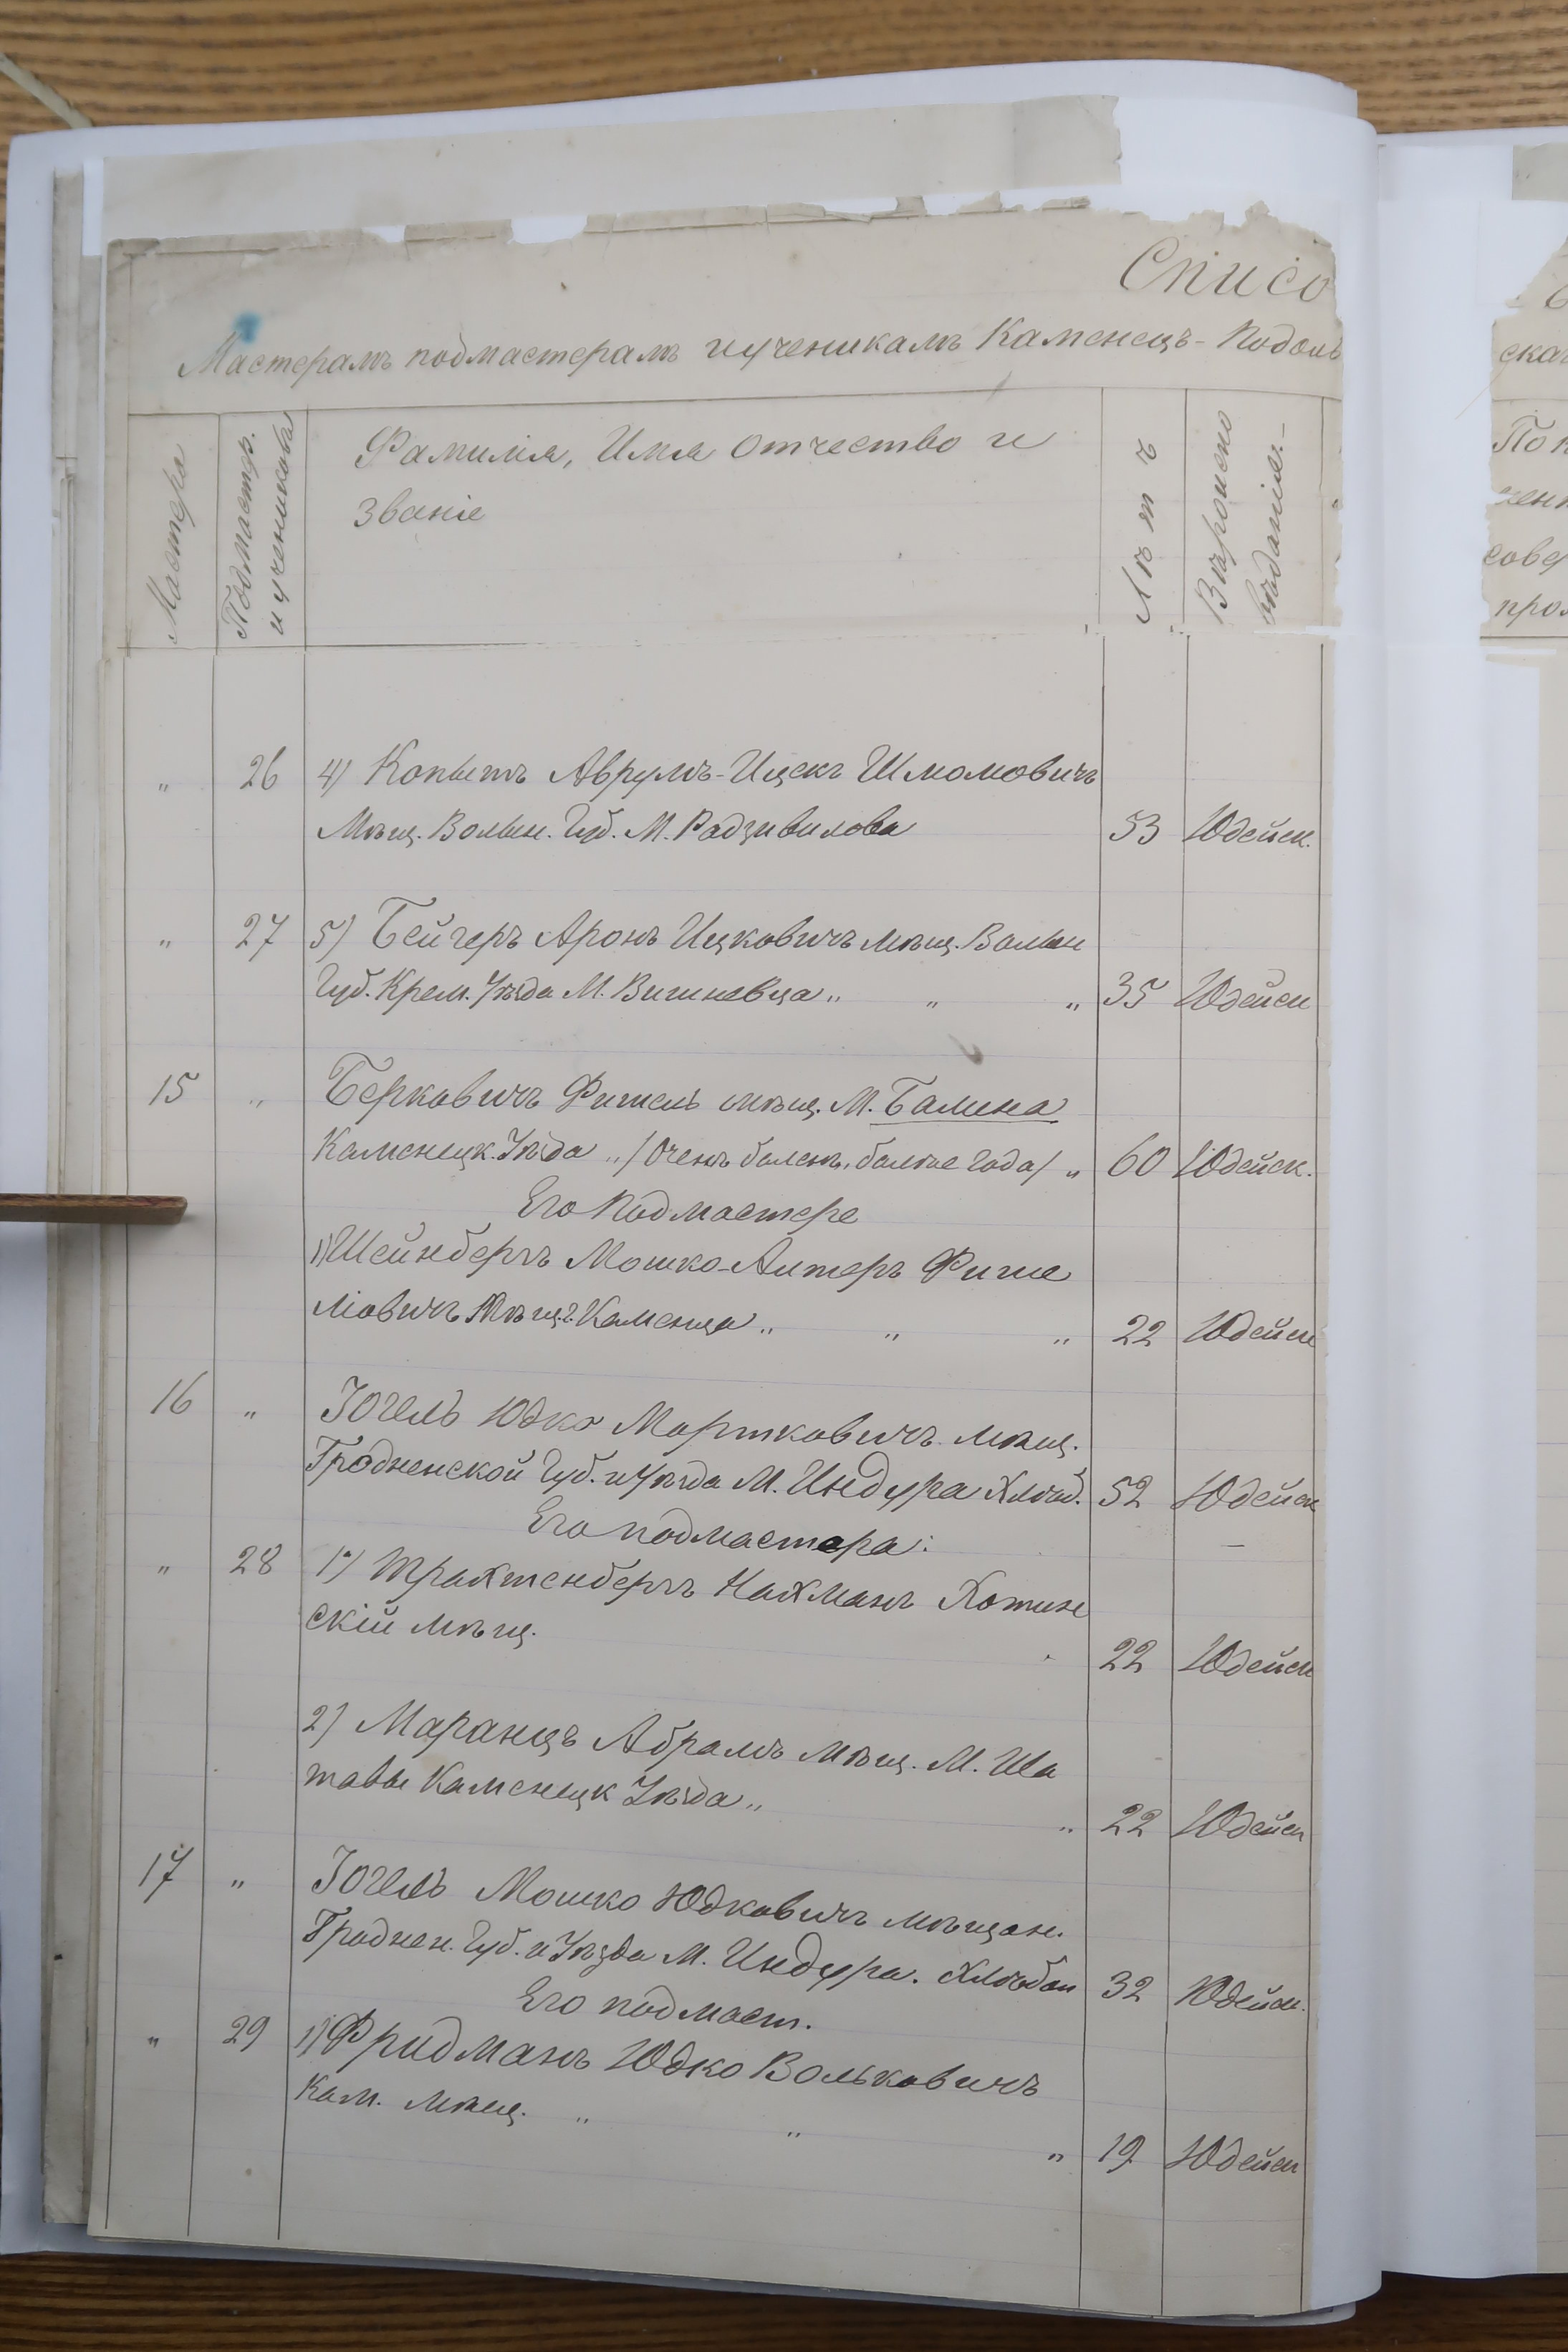 Списо
Мастерамъ подмастерамъ и ученикамъ Каменецъ-Подоль
Мастера
Подмастер.
и учениковъ
Фамилія, Имя Отчество и
званіе
Лѣтъ
Вѣроиспо
вѣданія.
" 26 4) Копытъ Аврумъ-Ицекъ Шмомовичъ
Мѣщ. Волын. Губ. М. Радзивилова 53 Юдейск.
" 27 5) Бейгеръ Аронъ Ицковичъ мѣщ. Волын
Губ. Крем. Уѣзда М. Вишневца " " " 35 Юдейск
15 " Берковичъ Фишель мѣщ. М. Балина
Каменецк. Уѣзда " /Очень боленъ, болѣе года/ " 60 Юдейск.
Его Подмастере
1) Шейнбергъ Мошко-Алтеръ Фише
ліовичъ Мѣщ. г. Каменца " " " 22 Юдейск
16 " Іогель Юдко Мортковичъ мѣщ.
Гродненской Губ. и Уѣзда М. Индура Хлѣб. 52 Юдейск
Его подмастера:
" 28 1) Трахтенбергъ Нахманъ Хотин
скій мѣщ. 22 Юдейск
2) Маранцъ Абрамъ мѣщ. М. Ша
тавы Каменецк Уѣзда " " 22 Юдейск
17 " Іогель Мошко Юдковичъ мѣщан.
Гроднен. Губ. и Уѣзда М. Индура. Хлѣбоп 32 Юдейск.
Его подмаст.
" 29 1) Фридманъ Юдко Вольковичъ
Кам. мѣщ. " " " 19 Юдейск
скаг
По к
ченн
сове